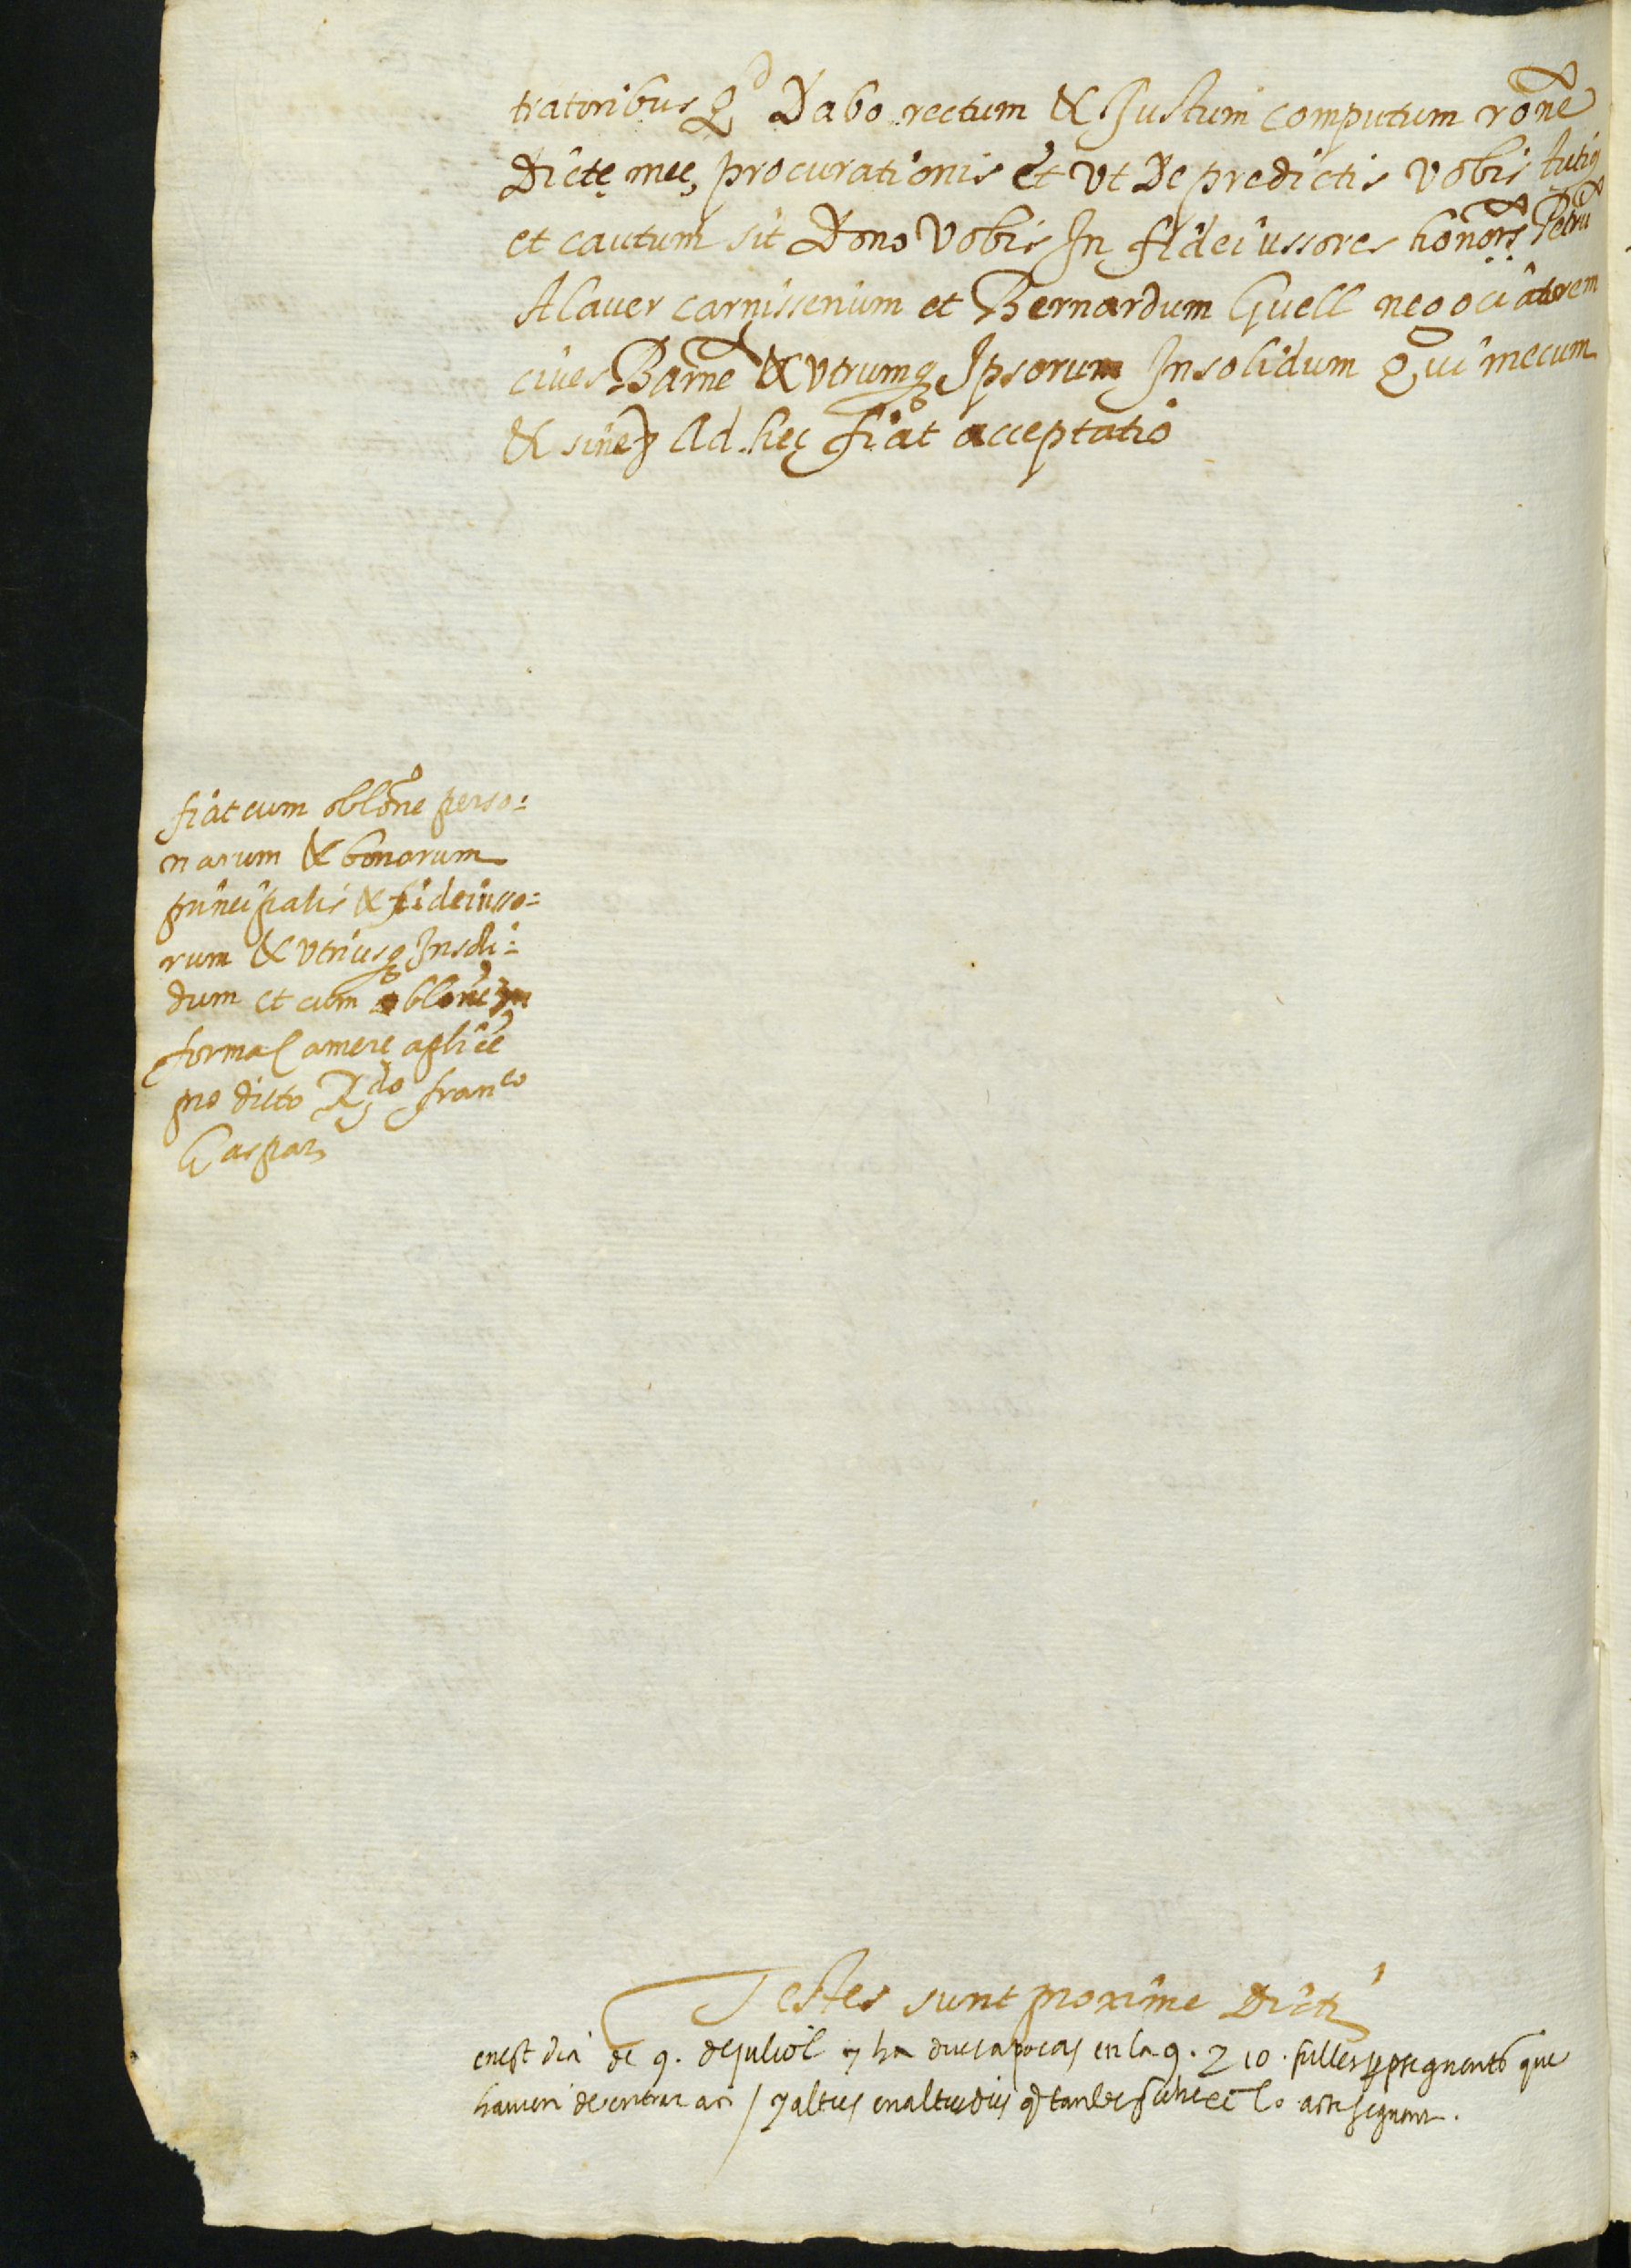 tratoribus qd Dabo rectum & Justum computum rone
Dicte mee, procurationis et vt De predictis vobis tutius
et cautum sit Dono vobis In fideiussores honors Petrū
Alauer carnisserium et Bernardum Guell negociatorem
ciues Barne & vtrumq Ipsorum Insolidum Qui mecum
& sine Ad hec fiat acceptatio
fiat cum oblone perso=
narum & bonorum
principalis & fideiusso=
rum & vtriusq Insoli=
dum et cum oblone in
forma
pro dicto Rdo franco
Gaspar
Testes sunt proxime Dicti
en est dia de 9. de juliol y ha dues apocas en la 9. 2 10. fulles seguents que
hauien de entrar aci / y altres en altres dies